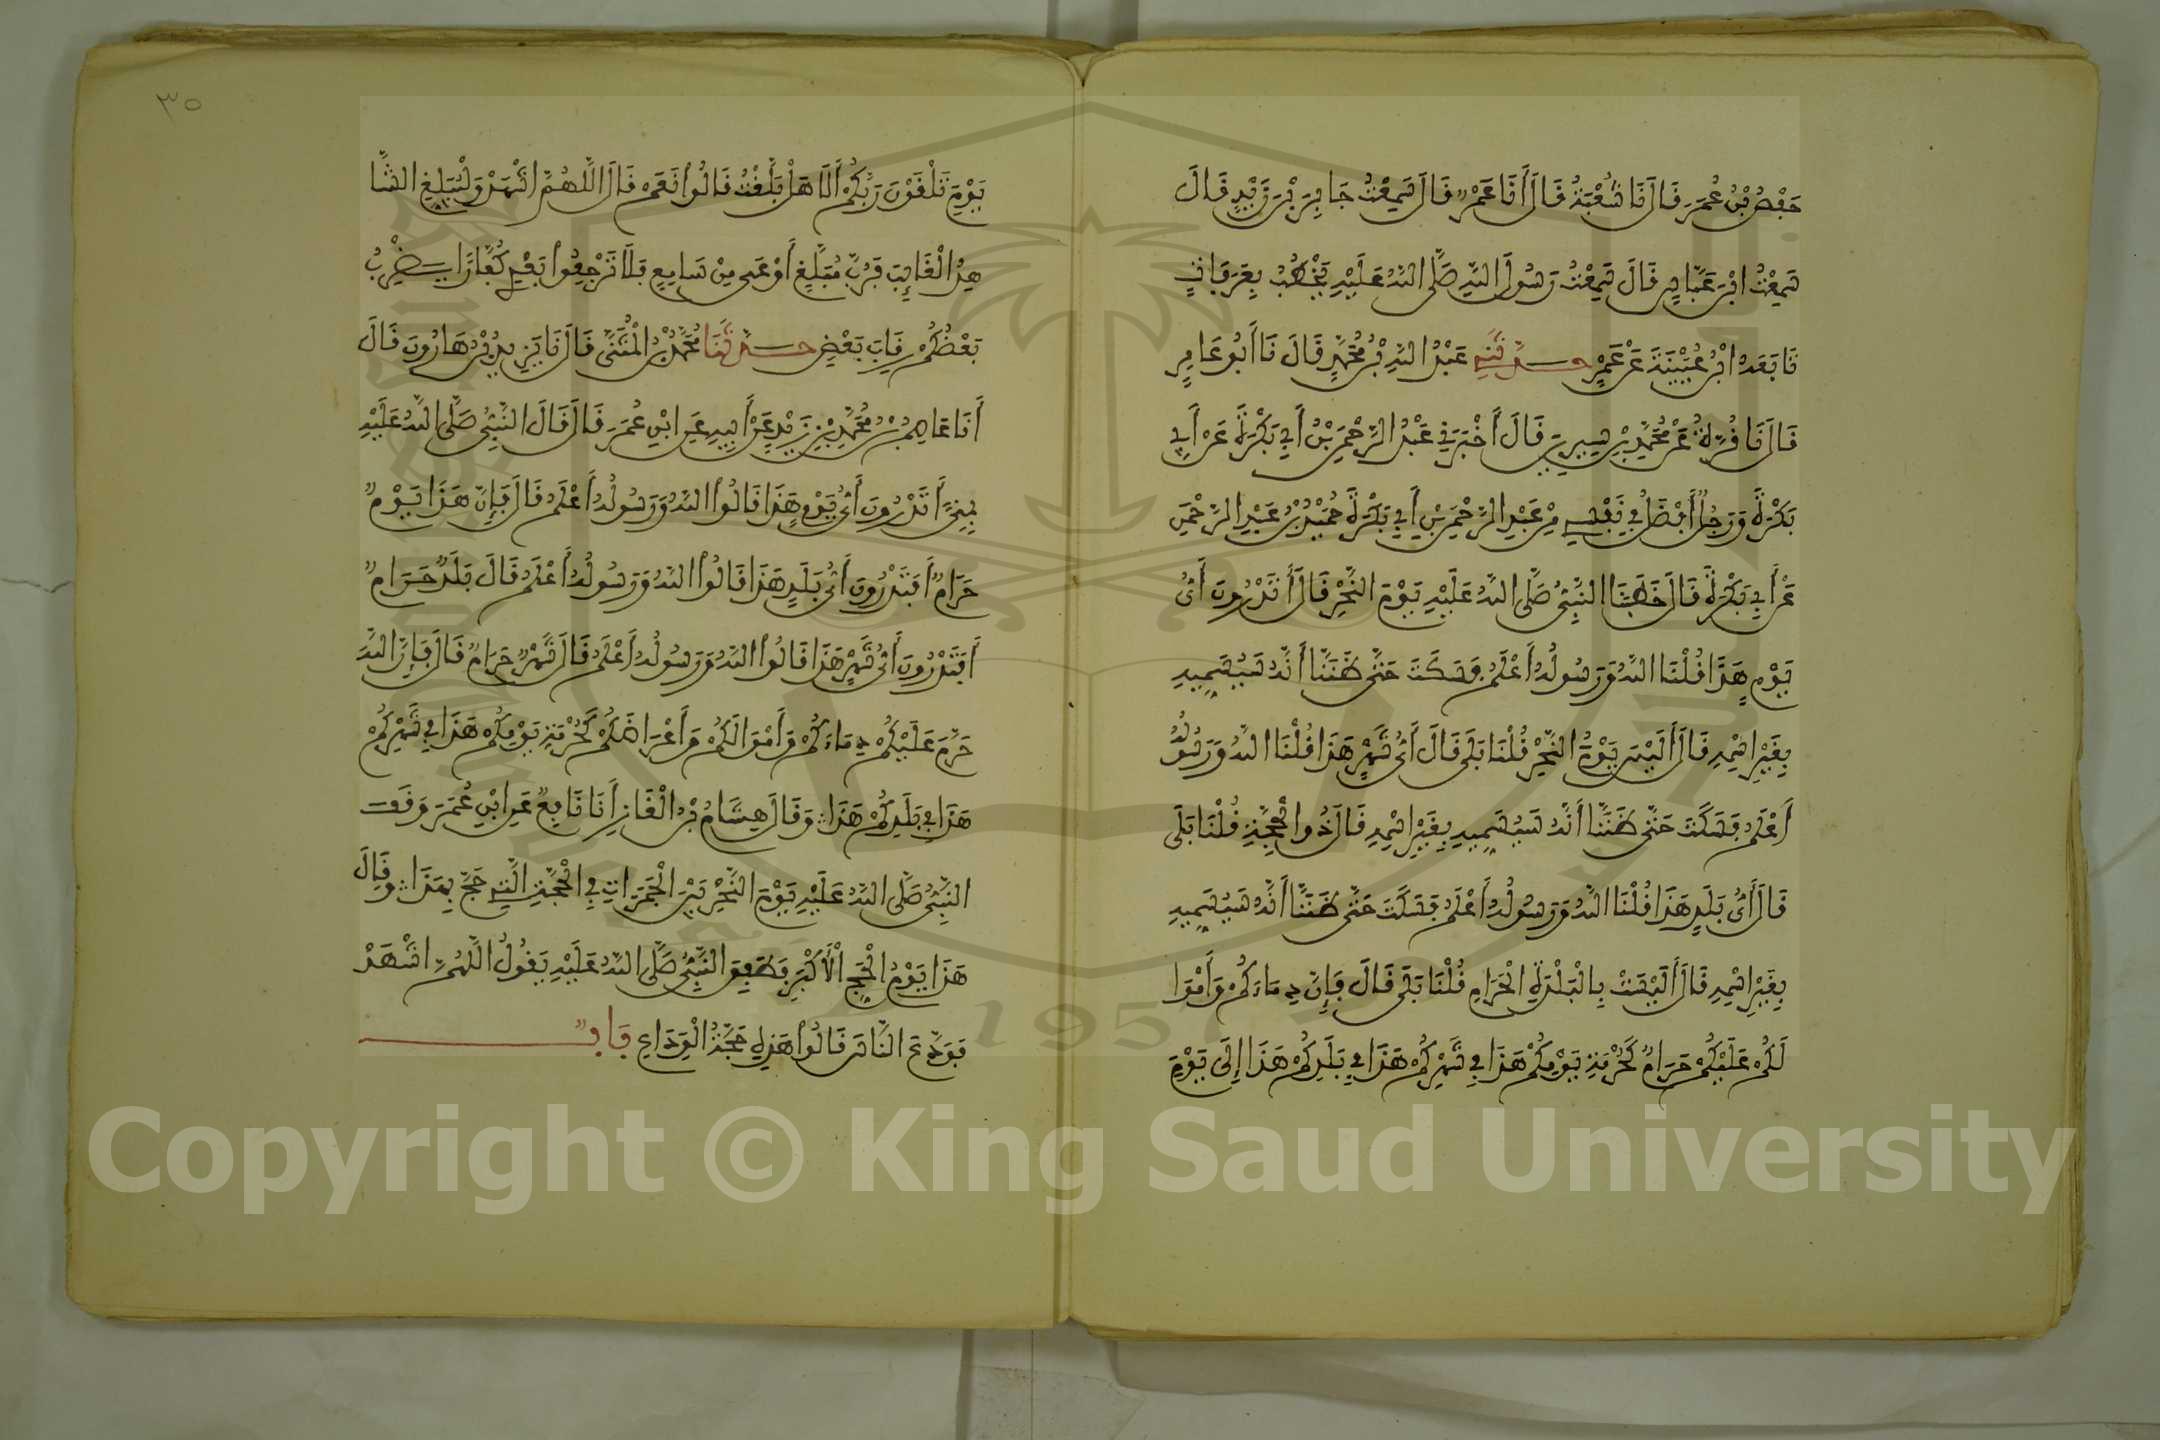 حَفْصُ بْنُ عُمَرَ قَالَ نَا شُعْبَةُ قَالَ أَنَا عَمْرٌو قَالَ سَمِعْتُ جَابِرَ بْنَ زَيْدٍ قَالَ
سَمِعْتُ ابْنَ عَبَّاسٍ قَالَ سَمِعْتُ رَسُولَ اللَّهِ صَلَّى اللَّهُ عَلَيْهِ يَخْطُبُ بِعَرَفَاتٍ
تَابَعَهُ ابْنُ عُيَيْنَةَ عَنْ عَمْرٍو حَدَّثَنِي عَبْدُ اللَّهِ بْنُ مُحَمَّدٍ قَالَ نَا أَبُو عَامِرٍ
قَالَ نَا قُرَّةُ عَنْ مُحَمَّدِ بْنِ سِيرِينَ قَالَ أَخْبَرَنِي عَبْدُ الرَّحْمَنِ بْنُ أَبِي بَكْرَةَ عَنْ أَبِي
بَكْرَةَ وَرَجُلٌ أَفْضَلُ فِي نَفْسِي مِنْ عَبْدِ الرَّحْمَنِ بْنِ أَبِي بَكْرَةَ حُمَيْدُ بْنُ عَبْدِ الرَّحْمَنِ
عَنْ أَبِي بَكْرَةَ قَالَ خَطَبَنَا النَّبِيُّ صَلَّى اللَّهُ عَلَيْهِ يَوْمَ النَّحْرِ قَالَ أَتَدْرُونَ أَيُّ
يَوْمٍ هَذَا قُلْنَا اللَّهُ وَرَسُولُهُ أَعْلَمُ فَسَكَتَ حَتَّى ظَنَنَّا أَنَّهُ سَيُسَمِّيهِ
بِغَيْرِ اسْمِهِ قَالَ أَلَيْسَ يَوْمُ النَّحْرِ قُلْنَا بَلَى قَالَ أَيُّ شَهْرٍ هَذَا قُلْنَا اللَّهُ وَرَسُولُهُ
أَعْلَمُ فَسَكَتَ حَتَّى ظَنَنَّا أَنَّهُ سَيُسَمِّيهِ بِغَيْرِ اسْمِهِ قَالَ ذُوا الْحِجَّةِ قُلْنَا بَلَى
قَالَ أَيُّ بَلَدٍ هَذَا قُلْنَا اللَّهُ وَرَسُولُهُ أَعْلَمُ فَسَكَتَ حَتَّى ظَنَنَّا أَنَّهُ سَيُسَمِّيهِ
بِغَيْرِ اسْمِهِ قَالَ أَلَيْسَتْ بِالْبَلْدَةِ الْحَرَامِ قُلْنَا بَلَى قَالَ فَإِنَّ دِمَاءَكُمْ وَأَمْوَا
لَكُمْ عَلَيْكُمْ حَرَامٌ كَحُرْمَةِ يَوْمِكُمْ هَذَا فِي شَهْرِكُمْ هَذَا فِي بَلَدِكُمْ هَذَا إِلَى يَوْمِ
٣٥
يَوْمِ تَلْقَوْنَ رَبَّكُمْ أَلَا هَلْ بَلَّغْتُ قَالُوا نَعَمْ قَالَ اللَّهُمَّ اشْهَدْ وَلْيُبَلِّغِ الشَّا
هِدُ الْغَائِبَ فَرُبَّ مُبَلَّغٍ أَوْعَى مِنْ سَامِعٍ فَلَا تَرْجِعُوا بَعْدِي كُفَّارًا يَضْرِبُ
بَعْضُكُمْ رِقَابَ بَعْضٍ حَدَّثَنَا مُحَمَّدُ بْنُ الْمُثَنَّى قَالَ نَا يَزِيدُ بْنُ هَارُونَ قَالَ
أَنَا عَاصِمُ بْنُ مُحَمَّدِ بْنِ زَيْدٍ عَنْ أَبِيهِ عَنِ ابْنِ عُمَرَ قَالَ قَالَ النَّبِيُّ صَلَّى اللَّهُ عَلَيْهِ
بِمِنًى أَتَدْرُونَ أَيُّ يَوْمٍ هَذَا قَالُوا اللَّهُ وَرَسُولُهُ أَعْلَمُ قَالَ فَإِنَّ هَذَا يَوْمٌ
حَرَامٌ أَفَتَدْرُونَ أَيُّ بَلَدٍ هَذَا قَالُوا اللَّهُ وَرَسُولُهُ أَعْلَمُ قَالَ بَلَدٌ حَرَامٌ
أَفَتَدْرُونَ أَيُّ شَهْرٍ هَذَا قَالُوا اللَّهُ وَرَسُولُهُ أَعْلَمُ قَالَ شَهْرٌ حَرَامٌ قَالَ فَإِنَّ اللَّهَ
حَرَّمَ عَلَيْكُمْ دِمَاءَكُمْ وَأَمْوَالَكُمْ وَأَعْرَاضَكُمْ كَحُرْمَةِ يَوْمِكُمْ هَذَا فِي شَهْرِكُمْ
هَذَا فِي بَلَدِكُمْ هَذَا وَقَالَ هِشَامُ بْنُ الْغَازِ أَنَا نَافِعٌ عَنِ ابْنِ عُمَرَ وَقَفَ
النَّبِيُّ صَلَّى اللَّهُ عَلَيْهِ يَوْمَ النَّحْرِ بَيْنَ الْجَمَرَاتِ فِي الْحَجَّةِ الَّتِي حَجَّ بِهَذَا وَقَالَ
هَذَا يَوْمُ الْحَجِّ الْأَكْبَرِ فَطَفِقَ النَّبِيُّ صَلَّى اللَّهُ عَلَيْهِ يَقُولُ اللَّهُمَّ اشْهَدْ
فَوَدَّعَ النَّاسَ فَقَالُوا هَذِهِ حَجَّةُ الْوَدَاعِ بَابٌ
1957
Copyright © King Saud University